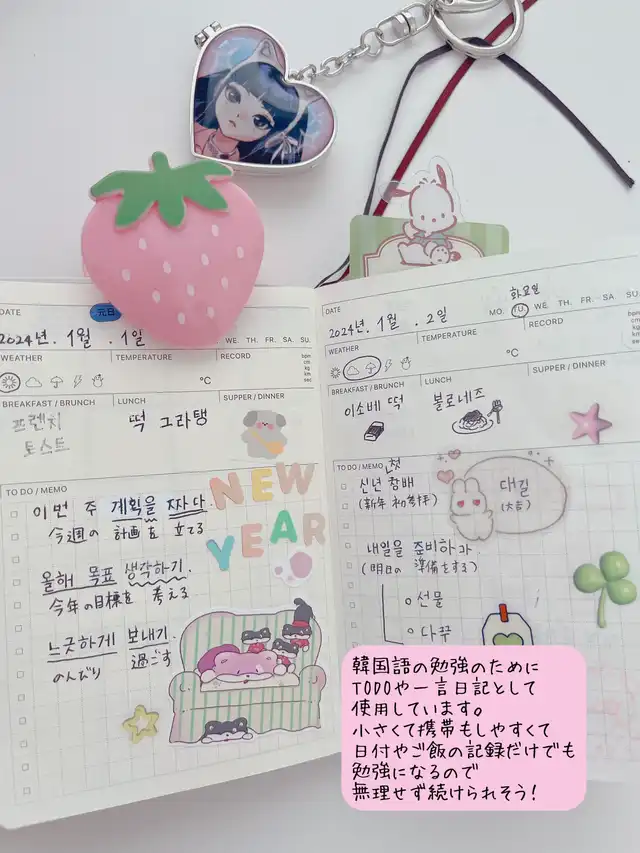 DATE
元日
2024년. 1월 . 1일
WE. TH. FR. SA. SU.
WEATHER
TEMPERATURE
RECORD
bpm
cm
kg
km
sec
°C
BREAKFAST / BRUNCH
LUNCH
SUPPER / DINNER
프렌치
토스트
떡 그라탱
TO DO / MEMO
이번 주 계획을 짜다
今週の 計画を 立てる
올해 목표 생각하기.
今年の目標を 考える
느긋하게 보내기.
のんびり 過ごす
NEW
YEAR
DATE
화요일
2024년. 1월 . 2일
MO. TU. WE. TH. FR. SA. SU.
WEATHER
TEMPERATURE
RECORD
bpm
cm
kg
km
sec
°C
BREAKFAST / BRUNCH
LUNCH
SUPPER / DINNER
이소베 떡
볼로네즈
TO DO / MEMO
첫
신년 참배
(新年 初参拝)
대길
(大吉)
내일을 준비하다.
(明日の 準備をする)
선물
다꾸
韓国語の勉強のために
TODOや一言日記として
使用しています。
小さくて携帯もしやすくて
日付やご飯の記録だけでも
勉強になるので
無理せず続けられそう!